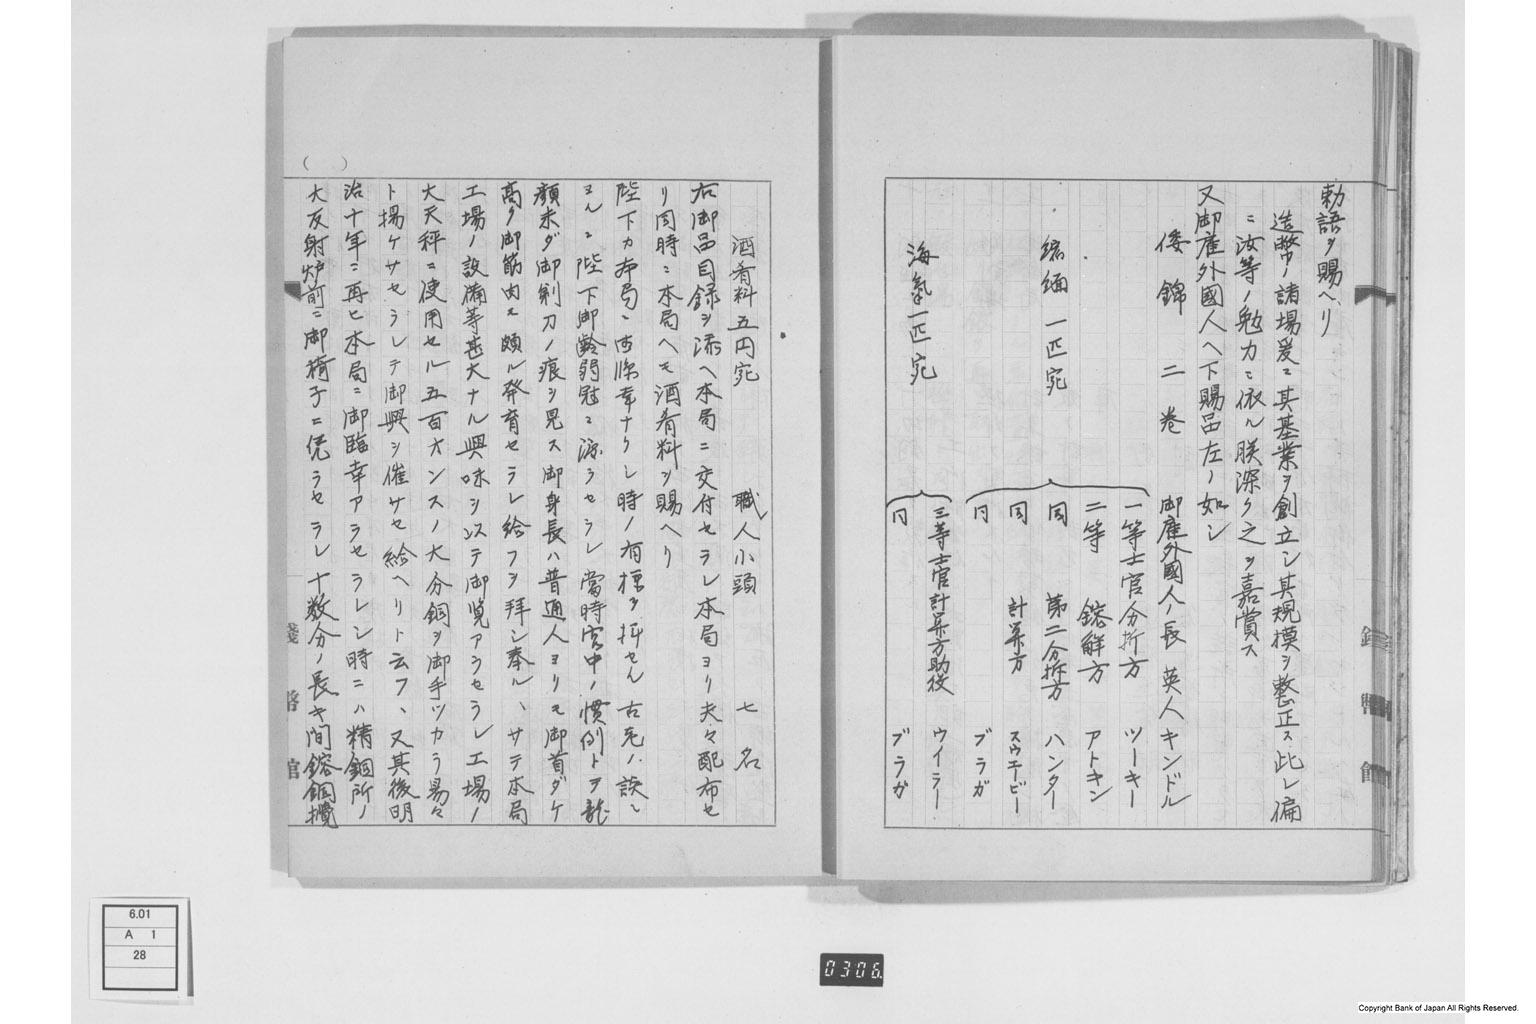 勅語ヲ賜ヘリ
造幣ノ諸場爰ニ其基業ヲ創立シ其規模ヲ整正ス此レ偏
ニ汝等ノ勉力ニ依ル朕深ク之ヲ嘉賞ス
又御雇外國人ヘ下賜品左ノ如シ
倭錦 二巻 御雇外國人ノ長 英人キンドル
一等士官分析方 ツーキー
二等 鎔解方 アトキン
縮緬 一匹宛 同 第二分析方 ハンター
同 計算方 スウエービー
同 ブラガ
海氣一匹宛 三等士官計算方助役 ウイラー
同 ブラガ
酒肴料五円宛 職人小頭 七名
右御品目録ヲ添ヘ本局ニ交付セラレ本局ヨリ夫々配布セ
リ同時ニ本局ヘモ酒肴料ヲ賜ヘリ
陛下カ本局ニ御臨幸ナリシ時ノ有様ヲ拝セル古老ノ談ニ
ヨルニ陛下御齢弱冠ニ渉ラセラレ當時宮中ノ慣例トヲ龍
顔未ダ御剃刀ノ痕ヲ見ス御身長ハ普通人ヨリモ御首ダケ
高ク御筋肉モ頗ル発育セラレ給フヲ拝シ奉ル、サテ本局
工場ノ設備等甚大ナル興味ヲ以テ御覧アラセラレ工場ノ
大天秤ニ使用セル五百オンスノ大分銅ヲ御手ヅカラ易々
ト揚ケサセラレテ御興ヲ催サセ給ヘリト云フ、又其後明
治十年ニ再ヒ本局ニ御臨幸アラセラレシ時ニハ精銅所ノ
大反射炉前ニ御椅子ニ凭ラセラレ十数分ノ長キ間鎔銅攪
6.01
A 1
28
0306
Copyright Bank of Japan All Rights Reserved.